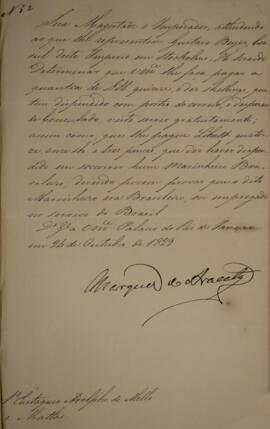 N.º 52
Sua Magestade o Imperador, attendendo
ao que lhe representou Gustavo Beyer, Con-
sul deste Imperio em Stockolmo, Há
Determinar que VM lhe faça pagar a
quantia de quinze, e dez shelings, que
tem dispendido com portes de correio, e despezas
de Consulado, visto servir gratuitamente;
assim como, que lhe pague
ze e tres pences, que diz haver dispen-
dido em soccorrer hum Marinheiro Bra-
sileiro, devendo porem provar que o dito
Marinheiro era Brasileiro, ou empregado
no serviço do Brasil
D.s G.e a VM.ce Palacio do Rio de Janeiro
em 26 de Outubro de 1829
Marquez do Aracaty
S.r Eustaquio Adolfo de Mello
e Mattos